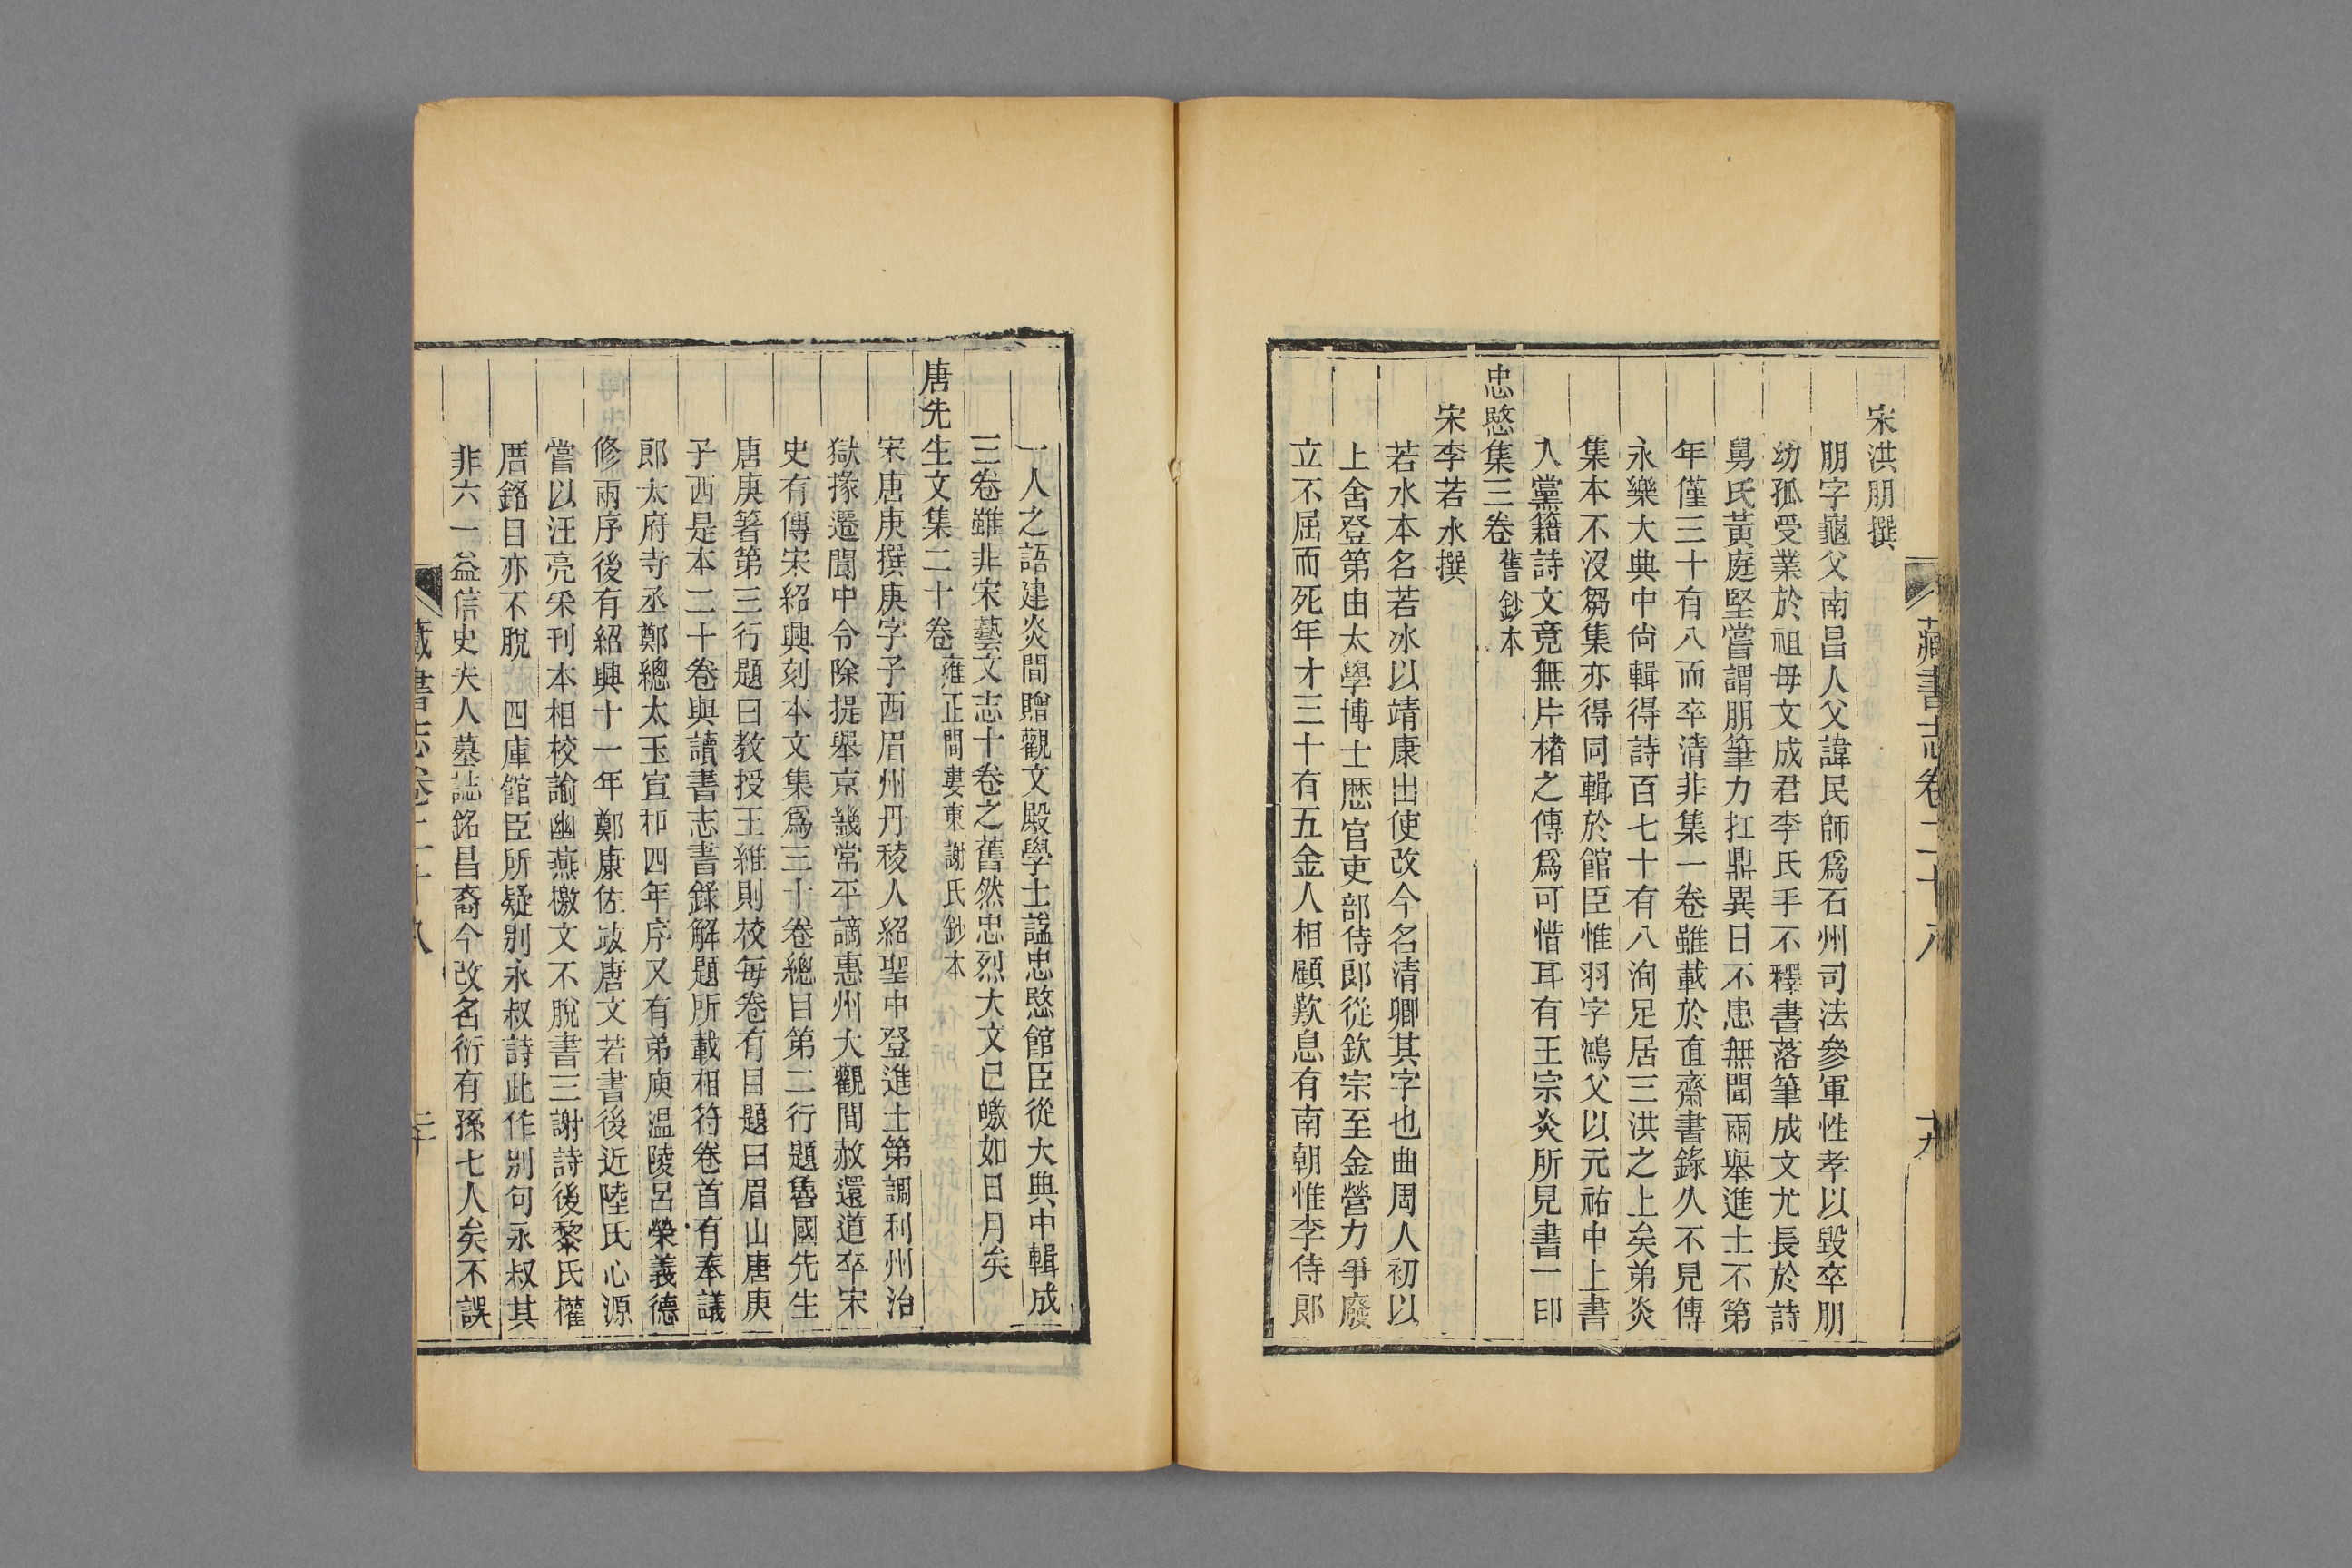 藏書志卷二十八
十九
宋洪朋撰
朋字龜父南昌人父諱民師爲石州司法參軍性孝以毀卒朋
幼孤受業於祖母文成君李氏手不釋書落筆成文尤長於詩
舅氏黃庭堅嘗謂朋筆力扛鼎異日不患無聞兩舉進士不第
年僅三十有八而卒清非集一卷雖載於直齋書錄久不見傳
永樂大典中尙輯得詩百七十有八洵足居三洪之上矣弟炎
集本不沒芻集亦得同輯於館臣惟羽字鴻父以元祐中上書
入黨籍詩文竟無片楮之傳爲可惜耳有王宗炎所見書一印
忠愍集三卷舊鈔本
宋李若水撰
若水本名若冰以靖康出使改今名清卿其字也曲周人初以
上舍登第由太學博士歷官吏部侍郞從欽宗至金營力爭廢
立不屈而死年才三十有五金人相顧歎息有南朝惟李侍郞
一人之語建炎間贈觀文殿學士謚忠愍館臣從大典中輯成
三卷雖非宋藝文志十卷之舊然忠烈大文已皦如日月矣
唐先生文集二十卷雍正間婁東謝氏鈔本
宋唐庚撰庚字子西眉州丹稜人紹聖中登進士第調利州治
獄掾遷閬中令除提舉京畿常平謫惠州大觀間赦還道卒宋
史有傳宋紹興刻本文集爲三十卷總目第二行題魯國先生
唐庚著第三行題曰教授王維則校每卷有目題曰眉山唐庚
子西是本二十卷與讀書志書錄解題所載相符卷首有奉議
郎太府寺丞鄭總太玉宣和四年序又有弟庾温陵呂榮義德
修兩序後有紹興十一年鄭康佐跋唐文若書後近陸氏心源
嘗以汪亮采刊本相校諭幽燕檄文不脫書三謝詩後黎氏權
厝銘目亦不脫 四庫館臣所疑別永叔詩此作別句永叔其
非六一益信史夫人墓誌銘昌裔今改名衎有孫七人矣不誤
藏書志卷二十八
二十